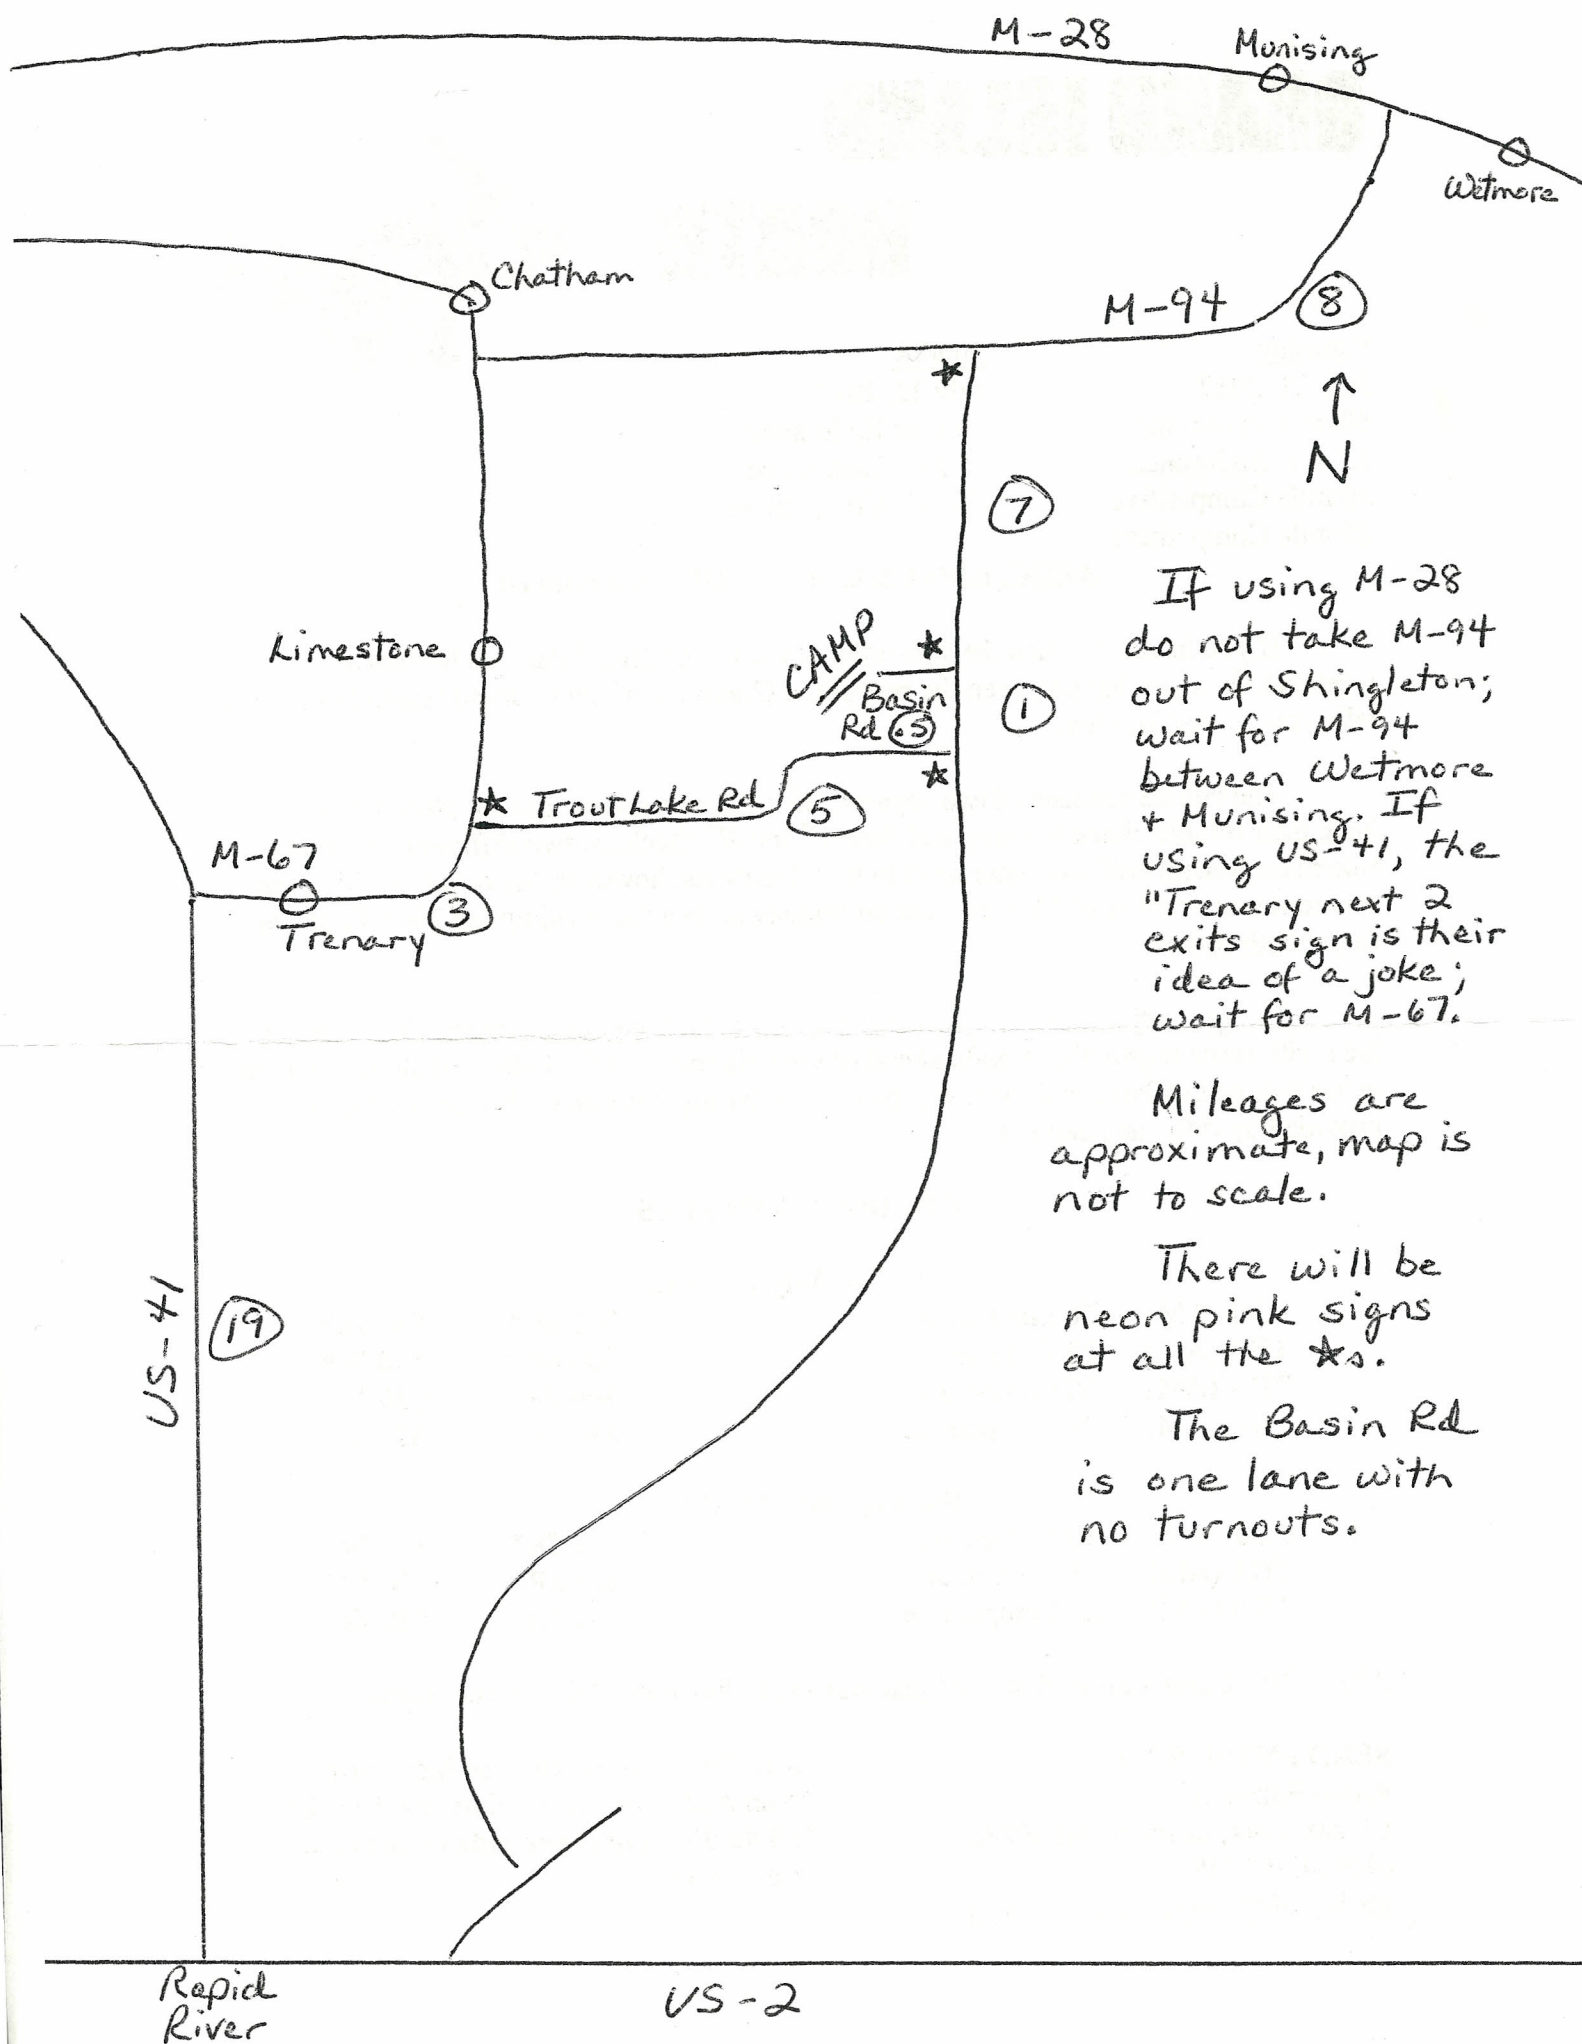 M-28
Munising
Wetmore
Chatham
M-94
8
★
↑
N
7
Limestone
CAMP
★
Basin
Rd .5
1
★
★ Trout Lake Rd
5
M-67
3
Trenary
If using M-28
do not take M-94
out of Shingleton;
wait for M-94
between Wetmore
+ Munising. If
using US-41, the
"Trenary next 2
exits sign is their
idea of a joke;
wait for M-67.
Mileages are
approximate, map is
not to scale.
There will be
neon pink signs
at all the ★s.
The Basin Rd
is one lane with
no turnouts.
US-41
19
Rapid
River
US-2